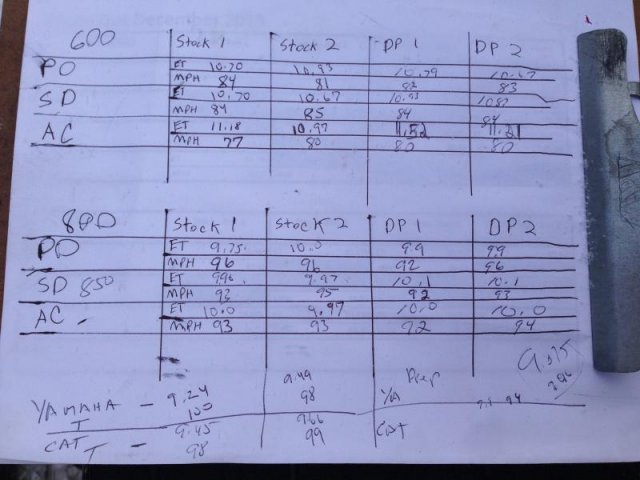 600 Stock 1 Stock 2 DP 1 DP 2
PO ET 10.70 10.93 10.79 10.67
MPH 84 81 82 83
SD ET 10.70 10.67 10.93
MPH 84 85 84 84
AC ET 11.18 10.97 11.52 11.21
MPH 77 80 80 80
800 Stock 1 Stock 2 DP 1 DP 2
PO ET 9.75 10.0 9.9 9.9
MPH 96 96 92 96
SD 850 ET 9.96 9.97 10.1 10.1
MPH 93 95 92 93
AC ET 10.0 9.97 10.0 10.0
MPH 93 93 92 94
9.375
YAMAHA T - 9.24 9.49 Prep YA
100 98 94
CAT T - 9.45 9.66 CAT
98 99